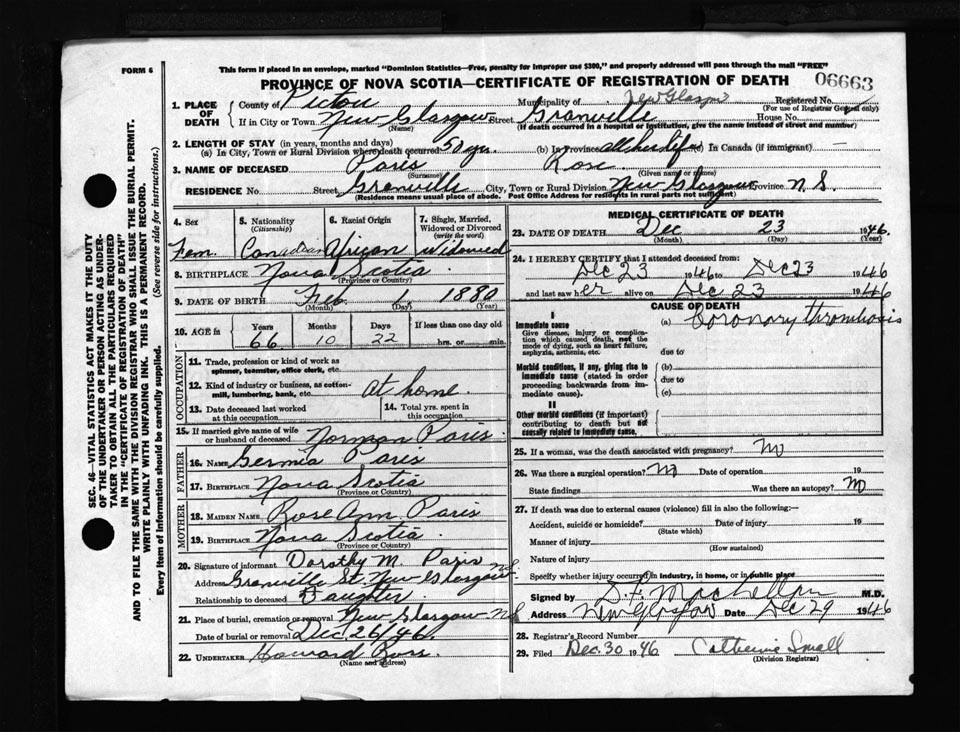 FORM 6
This form if placed in an envelope, marked "Dominion Statistics—Free, penalty for improper use $300," and properly addressed will pass through the mail "FREE"
PROVINCE OF NOVA SCOTIA—CERTIFICATE OF REGISTRATION OF DEATH
06663
SEC. 46—VITAL STATISTICS ACT MAKES IT THE DUTY
OF THE UNDERTAKER OR PERSON ACTING AS UNDER-
TAKER TO OBTAIN ALL THE PARTICULARS REQUIRED
IN THE "CERTIFICATE OF REGISTRATION OF DEATH"
AND TO FILE THE SAME WITH THE DIVISION REGISTRAR WHO SHALL ISSUE THE BURIAL PERMIT.
WRITE PLAINLY WITH UNFADING INK. THIS IS A PERMANENT RECORD.
Every item of information should be carefully supplied. (See reverse side for instructions.)
1. PLACE OF DEATH County of Pictou Municipality of New Glasgow Registered No.
(For use of Registrar General only)
If in City or Town New Glasgow Street Granville House No.
(Name) (If death occurred in a hospital or institution, give the name instead of street and number)
2. LENGTH OF STAY (in years, months and days)
(a) In City, Town or Rural Division where death occurred 50 yrs. (b) In Province all her life (c) In Canada (if immigrant) —
3. NAME OF DECEASED Paris Rose
(Surname) (Given name or names)
RESIDENCE No. Street Granville City, Town or Rural Division New Glasgow Province N.S.
(Residence means usual place of abode. Post Office Address for residents in rural parts not sufficient)
4. Sex Fem.
5. Nationality (Citizenship) Canadian
6. Racial Origin African
7. Single, Married, Widowed or Divorced (write the word) Widowed
8. BIRTHPLACE Nova Scotia.
(Province or Country)
9. DATE OF BIRTH Feb 1 1880
(Month) (Day) (Year)
10. AGE in Years 66 Months 10 Days 22 If less than one day old hrs. or min.
OCCUPATION
11. Trade, profession or kind of work as spinner, teamster, office clerk, etc.
12. Kind of industry or business, as cotton-mill, lumbering, bank, etc. at home.
13. Date deceased last worked at this occupation
14. Total yrs. spent in this occupation
15. If married give name of wife or husband of deceased Norman Paris
FATHER
16. Name Paris
17. Birthplace Nova Scotia
(Province or Country)
MOTHER
18. Maiden Name Rose Ann Paris
19. Birthplace Nova Scotia
(Province or Country)
20. Signature of informant Dorothy M. Paris
Address Granville St. New Glasgow N.S.
Relationship to deceased Daughter
21. Place of burial, cremation or removal New Glasgow N.S
Date of burial or removal Dec. 26/46.
22. UNDERTAKER Howard Ross.
(Name and address)
MEDICAL CERTIFICATE OF DEATH
23. DATE OF DEATH Dec 23 1946.
(Month) (Day) (Year)
24. I HEREBY CERTIFY that I attended deceased from:
Dec 23 1946 to Dec 23 1946
and last saw her alive on Dec 23 1946
CAUSE OF DEATH
I
Immediate cause (a) Coronary thrombosis
Give disease, injury or complication which caused death, not the mode of dying, such as heart failure, asphyxia, asthenia, etc.
due to
Morbid conditions, if any, giving rise to immediate cause (stated in order proceeding backwards from immediate cause).
(b)
due to
(c)
II
Other morbid conditions (if important) contributing to death but not causally related to immediate cause.
25. If a woman, was the death associated with pregnancy? No
26. Was there a surgical operation? No Date of operation 19
State findings Was there an autopsy? No
27. If death was due to external causes (violence) fill in also the following:—
Accident, suicide or homicide? Date of injury 19
(State which)
Manner of injury
(How sustained)
Nature of injury
Specify whether injury occurred in industry, in home, or in public place
Signed by M.D.
Address New Glasgow Date Dec 29 1946
28. Registrar's Record Number
29. Filed Dec. 30 1946 Catherine Small
(Division Registrar)